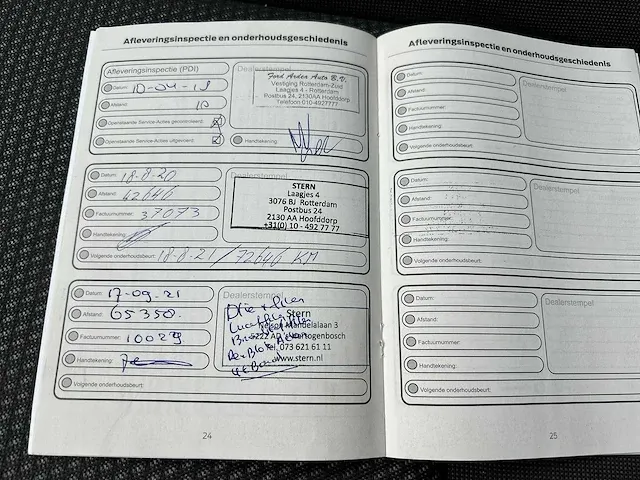 Afleveringsinspectie en onderhoudsgeschiedenis
Afleveringsinspectie (PDI)
Datum: 10-04-19
Afstand: 10
Openstaande Service-Acties gecontroleerd:
Openstaande Service-Acties uitgevoerd:
Dealerstempel
Ford Arden Auto B.V.
Vestiging Rotterdam-Zuid
Laagjes 4 - Rotterdam
Postbus 24, 2130AA Hoofddorp
Telefoon 010-4927777
Handtekening:
Datum: 18-8-20
Afstand: 42646
Factuurnummer: 37073
Handtekening:
Dealerstempel
STERN
Laagjes 4
3076 BJ Rotterdam
Postbus 24
2130 AA Hoofddorp
+31(0) 10 - 492 77 77
Volgende onderhoudsbeurt: 18-8-21 / 72646 KM
Datum: 17-09-21
Afstand: 65350
Factuurnummer: 10029
Handtekening:
Dealerstempel
Stern
Nelson Mandelalaan 3
Tel. 073 621 61 11
www.stern.nl
Volgende onderhoudsbeurt:
24
Afleveringsinspectie en onderhoudsgeschiedenis
Datum:
Afstand:
Factuurnummer:
Handtekening:
Volgende onderhoudsbeurt:
Dealerstempel
Datum:
Afstand:
Factuurnummer:
Handtekening:
Volgende onderhoudsbeurt:
Dealerstempel
Datum:
Afstand:
Factuurnummer:
Handtekening:
Volgende onderhoudsbeurt:
Dealerstempel
25